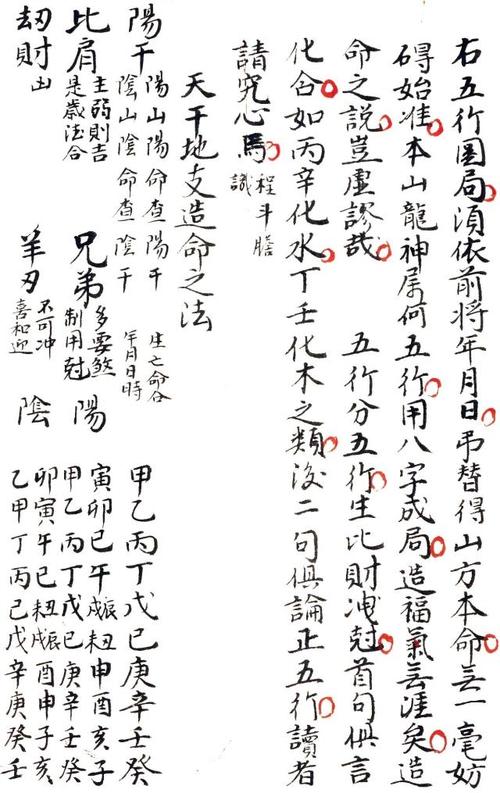 右五行圖局須依前將年月日弔替得山方本命無一毫妨
碍始准本山龍神屬何五行用八字成局造福氣無涯矣造
命之說豈虛謬哉 五行分五行生比財洩尅首句俱言
化合如丙辛化水丁壬化木之類後二句俱論正五行讀者
請究心焉 程斗膽識
天干地支造命之法
陽干 陽山陽命查陽干 生亡命合 甲乙丙丁戊己庚辛壬癸
陰山陰命查陰干 年月日時
比肩 主弱則吉 兄弟 多要煞 陽 寅卯巳午辰戌丑未申酉亥子
是歲法合 制用尅 甲乙丙丁戊己庚辛壬癸
刼財 凶 羊刃 不可冲 陰 卯寅午巳丑未辰戌酉申子亥
喜和迎 乙甲丁丙己戊辛庚癸壬